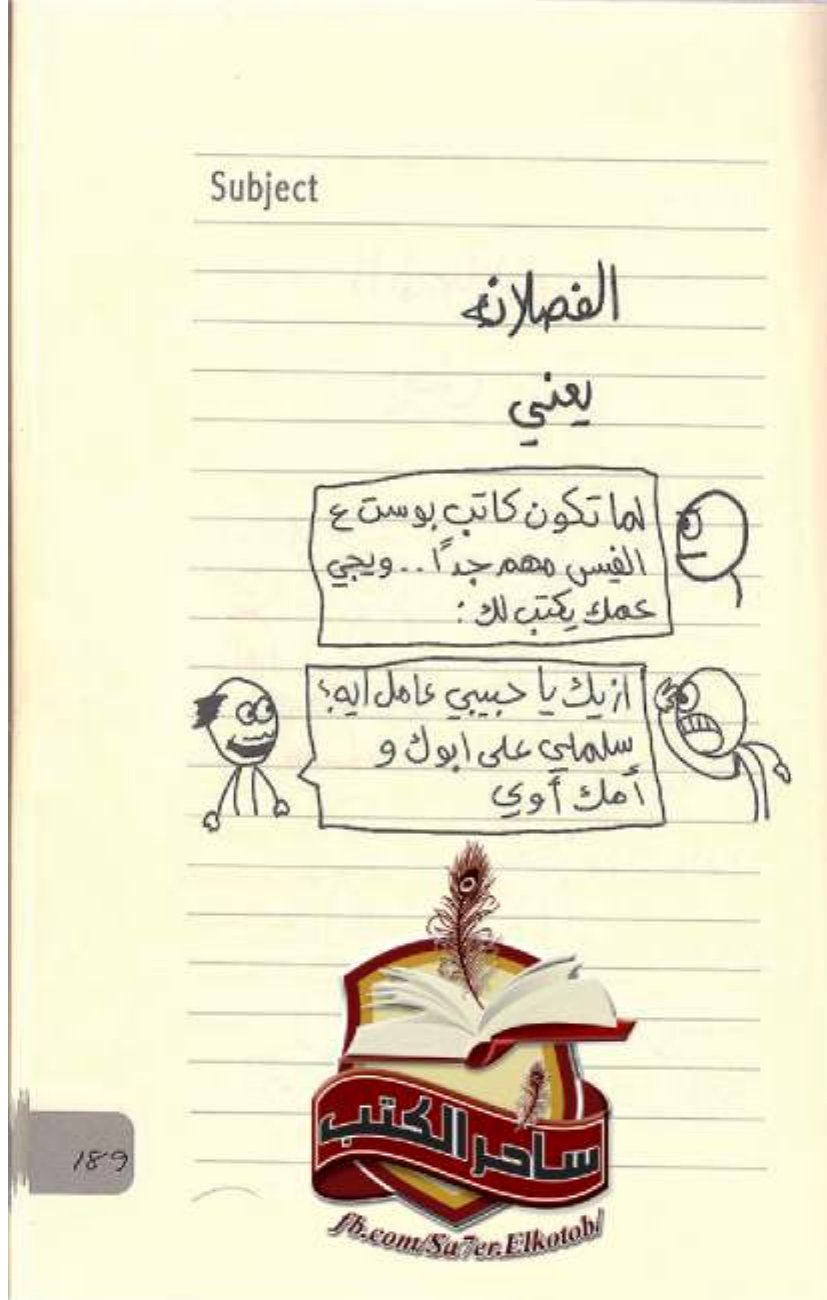 Subject
الفصلانه
يعني
لما تكون كاتب بوست ع
الفيس مهم جداً .. ويجي
عمك يكتب لك :
ازيك يا حبيبي عامل ايه؟
سلملي على ابوك و
أمك أوي
ساحر الكتب
fb.com/Sa7er.Elkotob/
189